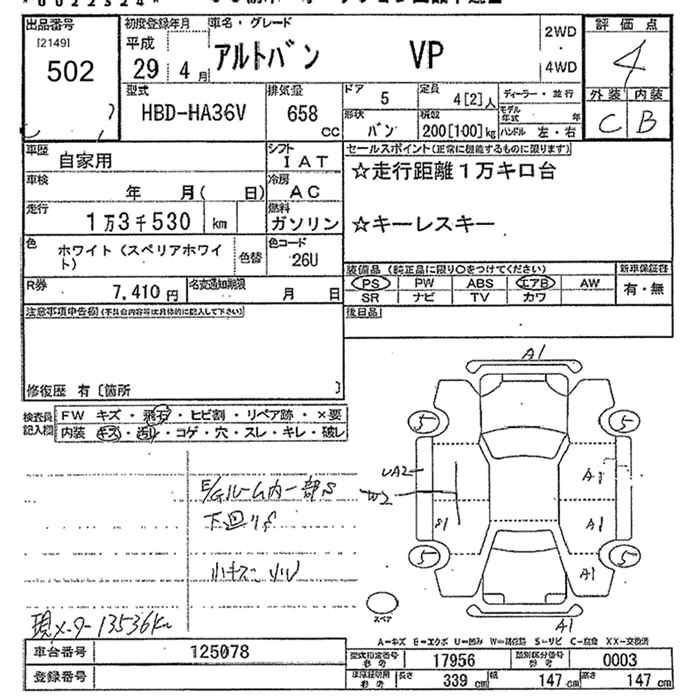 *0022324*
出品番号
[2149]
502
初度登録年月
平成
29 4月
車名・グレード
アルトバン VP
2WD
・
4WD
評価点
4
外装 内装
C B
型式
HBD-HA36V
排気量
658 CC
ドア 5
定員 4[2]人
形状 バン
積載 200[100]kg
ディーラー・並行
モデル年式 年
ハンドル 左・右
車歴
自家用
シフト
IAT
車検
年 月( 日)
冷房
AC
走行
1万3千530 km
燃料
ガソリン
色
ホワイト(スペリアホワイト)
色替
色コード
26U
R券
7,410円
名変通知期限
月 日
セールスポイント(正常に機能するものに限ります)
☆走行距離1万キロ台
☆キーレスキー
装備品(純正品に限り○をつけてください)
PS PW ABS エアB AW
SR ナビ TV カワ
新車保証書
有・無
後日品
注意事項申告欄(不具合内容等は具体的に記入して下さい)
修復歴 有[箇所 ]
検査員記入欄
FW キズ・飛石・ヒビ割・リペア跡・×要
内装 キズ・汚れ・コゲ・穴・スレ・キレ・破レ
E/Gルーム内一部S
下廻りS
小キズ 小U
現メーター13536km
A1
5
5
UA2
W2
S1
A1
A1
A1
5
5
スペア
A1
A-キズ E-エクボ U-凹み W-補修跡 S-サビ C-腐食 XX-交換済
車台番号
125078
登録番号
型式指定番号 参考
17956
類別区分番号 参考
0003
車庫証明用 参考
長さ 339 cm
幅 147 cm
高さ 147 cm